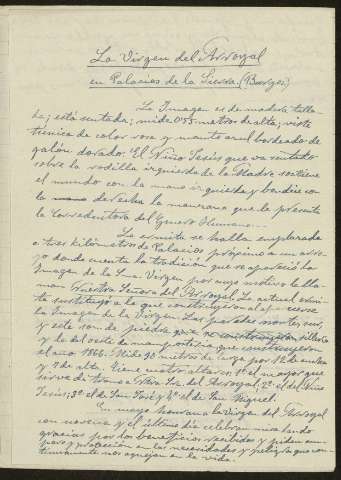 La Virgen del Arroyal
en Palacios de la Sierra. (Burgos)
La Imagen es de madera talla
da; está sentada; mide 0'55 metros de alta; viste
túnica de color rosa y manto azul bordeado de
galón dorado. El Niño Jesús que va sentado
sobre la rodilla izquierda de la Madre sostiene
el mundo con la mano izquierda y bendice con
la mano derecha la manzana que le presenta
la Corredentora del Género Humano.
La ermita se halla emplazada
a tres kilómetros de Palacios próximo a un arro-
yo donde cuenta la tradición que se apareció la
Imagen de la Sma. Virgen por cuyo motivo le lla-
man Nuestra Señora del Arroyal. La actual ermi-
ta sustituyó a la que construyeron al aparecerse
la Imagen de la Virgen. Las paredes norte, sur,
y este son de piedra que se construyeron sillería
y la del oeste de mampostería que construyeron
el año 1866. Mide 90 metros de larga por 12 de ancha
y 7 de alta. Tiene cuatro altares: 1º el mayor que
sirve de trono a Ntra. Sra. del Arroyal; 2º el del Niño
Jesús; 3º el de San José y 4º el de San Miguel.
En mayo honran a la Virgen del Arroyal
con novena y el último día celebran misa dando
gracias por los beneficios recibidos y piden am-
paro y protección en las necesidades y peligros que con-
tinuamente nos aquejan en la vida.